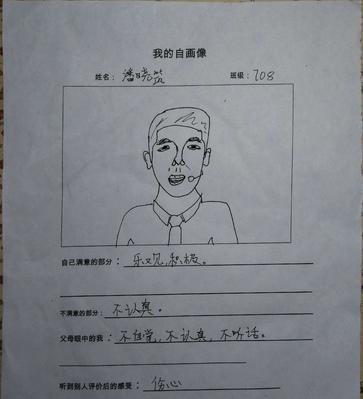 我的自画像
姓名：潘晓筑 班级：708
自己满意的部分：乐观，积极。
不满意的部分：不认真。
父母眼中的我：不自觉，不认真，不听话。
听到别人评价后的感受：伤心